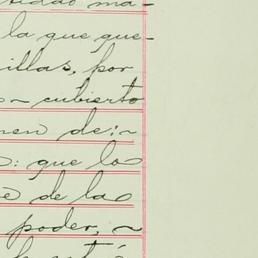 ma-
la que que-
illas, por
cubierto
men de:~
: que los
e de las
poder, ~